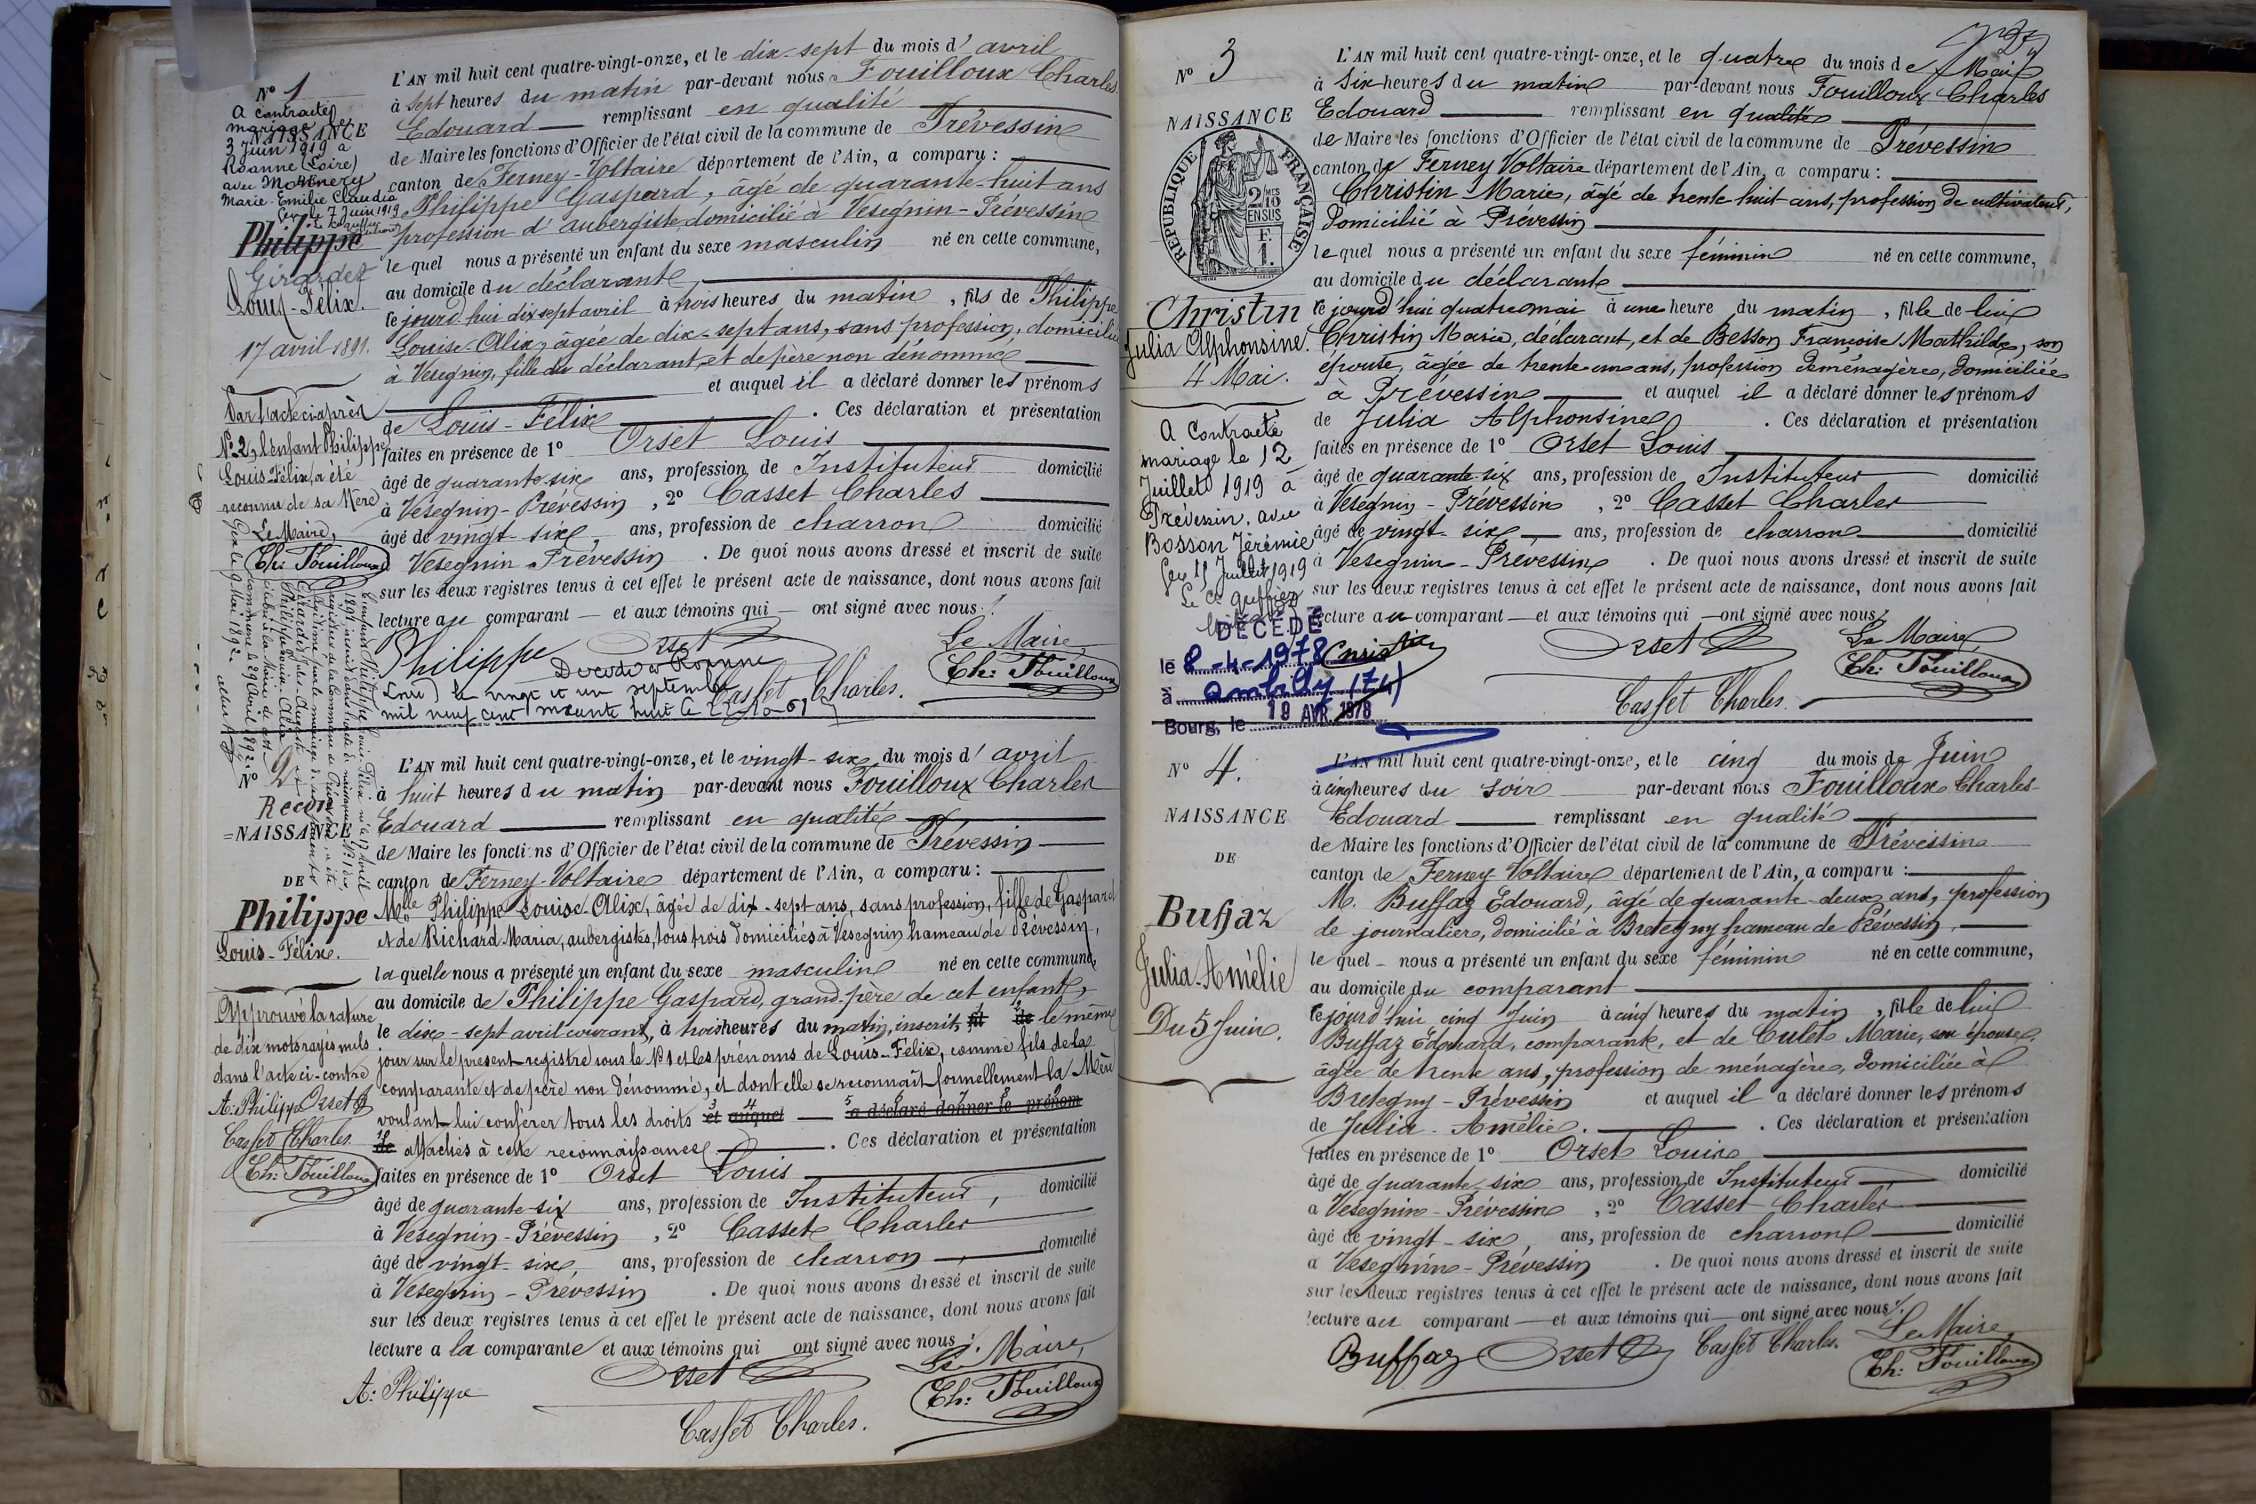 N° 1
A contracté
mariage le
3 Juin 1919 à
Roanne (Loire)
avec
Marie-Emilie Claudia
Gex le 7 Juin 1919
NAISSANCE
DE
Philippe
Girardet
Louis-Félix.
17 avril 1891.
Par l'acte ci après
N° 2, l'enfant Philippe
Louis-Félix, a été
reconnu de sa Mère
Le Maire,
Ch: Fouilloux
L'AN mil huit cent quatre-vingt-onze, et le dix-sept du mois d'avril
à sept heures du matin par-devant nous Fouilloux Charles
Edouard remplissant en qualité
de Maire les fonctions d'Officier de l'état civil de la commune de Prévessin
canton de Ferney-Voltaire département de l'Ain, a comparu :
Philippe Gaspard, âgé de quarante-huit ans
profession d'aubergiste, domicilié à Vesegnin-Prévessin
lequel nous a présenté un enfant du sexe masculin né en cette commune,
au domicile du déclarant
ce jourd'hui dix sept avril à trois heures du matin, fils de Philippe
Louise-Alix, âgée de dix-sept ans, sans profession, domiciliée
à Vesegnin, fille du déclarant, et de père non dénommé
et auquel il a déclaré donner les prénoms
de Louis-Félix. Ces déclaration et présentation
faites en présence de 1° Orset Louis
âgé de quarante-six ans, profession de Instituteur domicilié
à Vesegnin-Prévessin, 2° Casset Charles
âgé de vingt-six, ans, profession de charron domicilié
Vesegnin Prévessin. De quoi nous avons dressé et inscrit de suite
sur les deux registres tenus à cet effet le présent acte de naissance, dont nous avons fait
lecture au comparant et aux témoins qui ont signé avec nous.
Philippe Orset Le Maire,
Casset Charles. Ch: Fouilloux
Décédé à Roanne
(Loire) le vingt et un septembre
mil neuf cent soixante huit le
2
Recon
=NAISSANCE
DE
Philippe
Louis-Félix.
Approuvé la rature
de dix mots rayés nuls
dans l'acte ci-contre
A: Philippe Orset
Casset Charles
Ch: Fouilloux
L'AN mil huit cent quatre-vingt-onze, et le vingt-six, du mois d'avril
à huit heures du matin par-devant nous Fouilloux Charles
Edouard remplissant en qualité
de Maire les fonctions d'Officier de l'état civil de la commune de Prévessin
canton de Ferney-Voltaire département de l'Ain, a comparu :
Melle Philippe Louise-Alix, âgée de dix-sept ans, sans profession, fille de Gaspard
et de Richard Maria, aubergistes, tous trois domiciliés à Vesegnin hameau de Prévessin,
laquelle nous a présenté un enfant du sexe masculin né en cette commune,
au domicile de Philippe Gaspard, grand-père de cet enfant,
le dix-sept avril courant, à trois heures du matin, inscrit fil de le même
jour sur le présent registre sous le N° 1 et les prénoms de Louis-Félix, comme fils de la
comparante et de père non dénommé, et dont elle se reconnaît formellement la Mère
voulant lui conférer tous les droits et auquel a déclaré donner le prénom
de attachés à cette reconnaissance. Ces déclaration et présentation
faites en présence de 1° Orset Louis
âgé de quarante-six ans, profession de Instituteur, domicilié
à Vesegnin-Prévessin, 2° Casset Charles
âgé de vingt-six, ans, profession de charron, domicilié
à Vesegnin-Prévessin. De quoi nous avons dressé et inscrit de suite
sur les deux registres tenus à cet effet le présent acte de naissance, dont nous avons fait
lecture a la comparante et aux témoins qui ont signé avec nous.
Le Maire,
A: Philippe Orset Ch: Fouilloux
Casset Charles.
N° 3
NAISSANCE
RÉPUBLIQUE FRANÇAISE
Christin
Julia Alphonsine.
4 Mai.
A contracté
mariage le 12
Juillet 1919 à
Prévessin, avec
Bosson Jérémie
Gex 15 Juillet 1919
DÉCÉDÉ
le 8-4-1978
à Ambilly (74)
Bourg, le 19 AVR. 1978
L'AN mil huit cent quatre-vingt-onze, et le quatre du mois de Mai
à six heures du matin par-devant nous Fouilloux Charles
Edouard remplissant en qualité
de Maire les fonctions d'Officier de l'état civil de la commune de Prévessin
canton de Ferney Voltaire département de l'Ain, a comparu :
Christin Marie, âgé de trente huit ans, profession de cultivateur,
domicilié à Prévessin
lequel nous a présenté un enfant du sexe féminin né en cette commune,
au domicile du déclarant
ce jourd'hui quatre mai à une heure du matin, fille de lui
Christin Marie, déclarant, et de Besson Françoise Mathilde, son
épouse, âgée de trente un ans, profession de ménagère, domiciliée
à Prévessin et auquel il a déclaré donner les prénoms
de Julia Alphonsine. Ces déclaration et présentation
faites en présence de 1° Orset Louis
âgé de quarante-six ans, profession de Instituteur domicilié
à Vesegnin-Prévessin, 2° Casset Charles
âgé de vingt-six, ans, profession de charron domicilié
à Vesegnin-Prévessin. De quoi nous avons dressé et inscrit de suite
sur les deux registres tenus à cet effet le présent acte de naissance, dont nous avons fait
lecture au comparant et aux témoins qui ont signé avec nous.
Christin Orset Le Maire,
Casset Charles. Ch: Fouilloux
N° 4.
NAISSANCE
DE
Buffaz
Julia-Amélie
Du 5 Juin.
L'AN mil huit cent quatre-vingt-onze, et le cinq du mois de Juin
à cinq heures du soir par-devant nous Fouilloux Charles
Edouard remplissant en qualité
de Maire les fonctions d'Officier de l'état civil de la commune de Prévessin
canton de Ferney-Voltaire département de l'Ain, a comparu :
M. Buffaz Edouard, âgé de quarante-deux ans, profession
de journalier, domicilié à Bretegny hameau de Prévessin,
lequel nous a présenté un enfant du sexe féminin né en cette commune,
au domicile du comparant
ce jourd'hui cinq Juin à cinq heures du matin, fille de lui
Buffaz Edouard, comparant, et de Culet Marie, son épouse,
âgée de trente ans, profession de ménagère, domiciliée à
Bretegny-Prévessin et auquel il a déclaré donner les prénoms
de Julia-Amélie. Ces déclaration et présentation
faites en présence de 1° Orset Louis
âgé de quarante-six ans, profession de Instituteur domicilié
à Vesegnin-Prévessin, 2° Casset Charles
âgé de vingt-six, ans, profession de charron domicilié
à Vesegnin-Prévessin. De quoi nous avons dressé et inscrit de suite
sur les deux registres tenus à cet effet le présent acte de naissance, dont nous avons fait
lecture au comparant et aux témoins qui ont signé avec nous.
Buffaz Orset Casset Charles. Le Maire,
Ch: Fouilloux